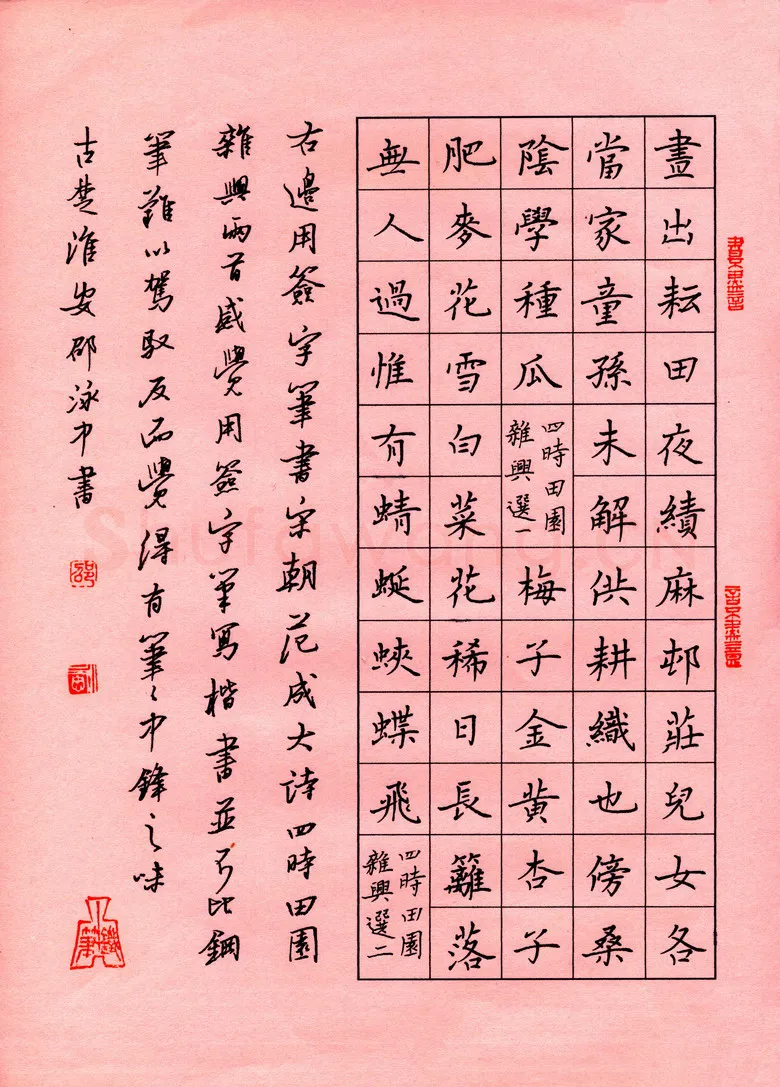 晝出耘田夜績麻邨莊兒女各
當家童孫未解供耕織也傍桑
陰學種瓜
四時田園
雜興選一
梅子金黃杏子
肥麥花雪白菜花稀日長籬落
無人過惟有蜻蜓蛺蝶飛
四時田園
雜興選二
右邊用簽字筆書宋朝范成大詩四時田園
雜興兩首感覺用簽字筆寫楷書並不比鋼
筆難以駕馭反而覺得有筆〻中鋒之味
古楚淮安邵泳中書
邵
鐵筆
Shufawang.cn